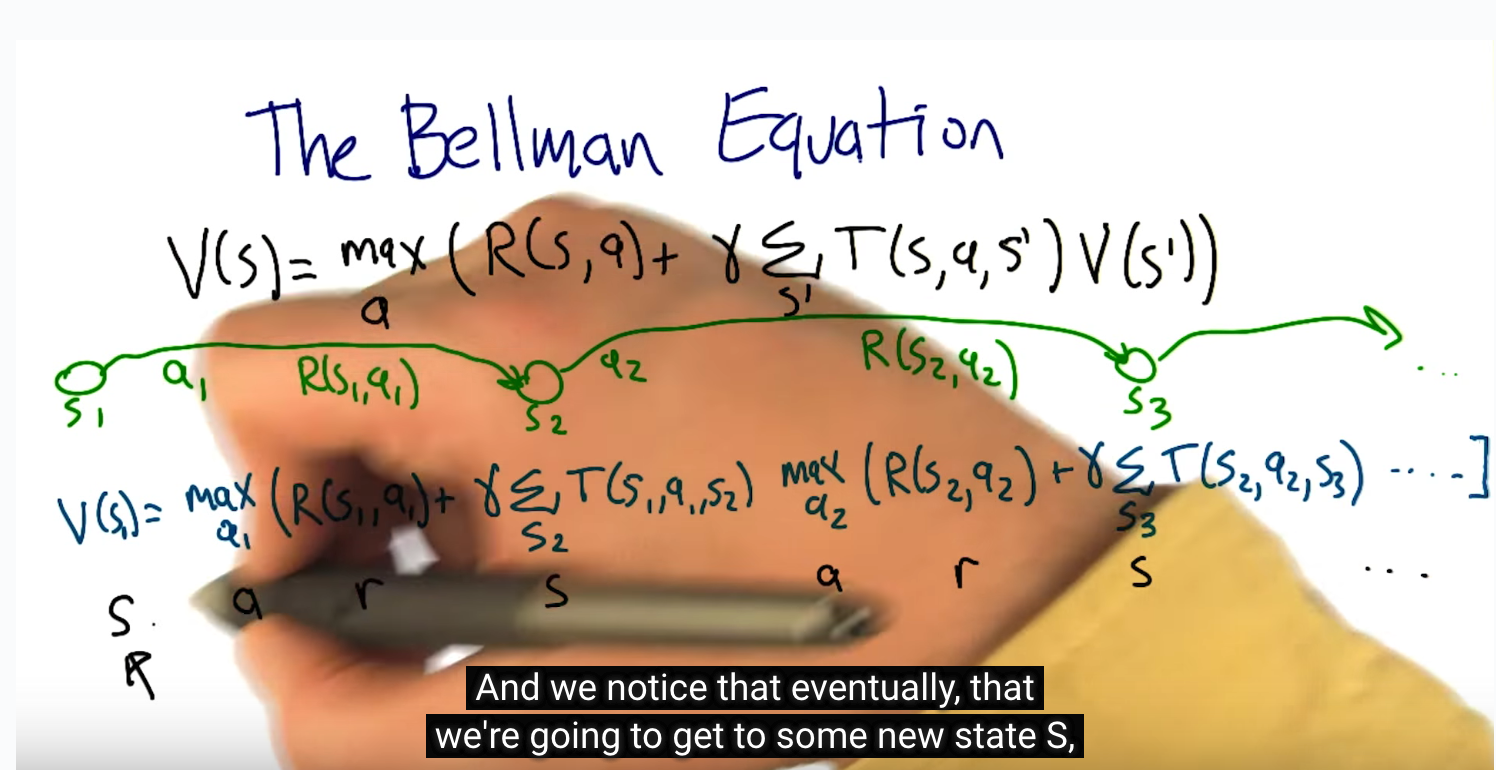 The Bellman Equation
V(s)= max a ( R(s,a)+ γ Σ s' T(s,a,s') V(s'))
s1 a1 R(s1,a1) s2 a2 R(s2,a2) s3 ...
V(s1)= max a1 (R(s1,a1)+ γ Σ s2 T(s1,a1,s2) max a2 (R(s2,a2) + γ Σ s3 T(s2,a2,s3) ....]
s a r s a r s ...
And we notice that eventually, that
we're going to get to some new state S,